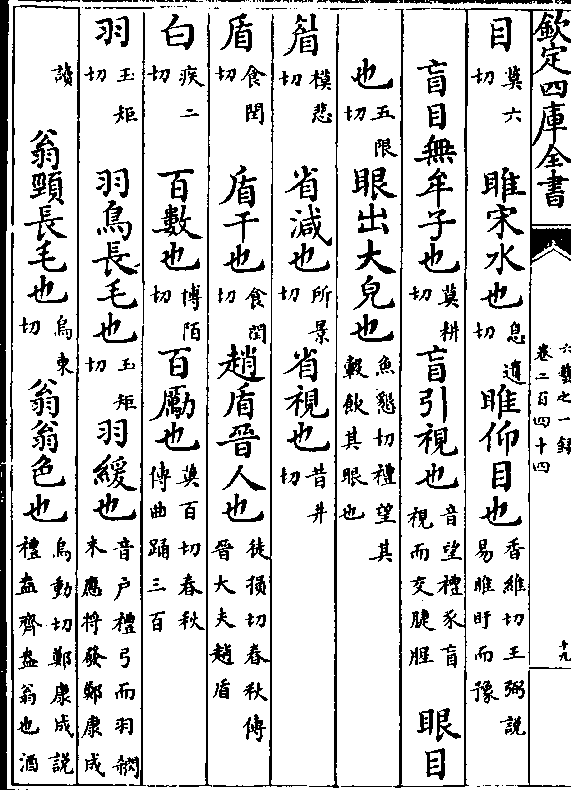 欽定四庫全書
六藝之一錄
卷二百四十四
十九
目莫六切 睢宋水也息遺切 睢仰目也香維切王弼説易睢盱而豫
盲目無牟子也莫耕切 盲引視也音望禮豕盲視而交睫腥 眼目
也五限切 眼出大皃也魚懇切禮望其轂飲其眼也
睂模悲切 省減也所景切 省視也昔井切
盾食閏切 盾干也食閏切 趙盾晉人也徒損切春秋傳晉大夫趙盾
白疾二切 百數也博陌切 百勵也莫百切春秋傳曲踊三百
羽玉矩切 羽鳥長毛也玉矩切 羽緩也音戶禮弓而羽閷末應將發鄭康成
讀 翁頸長毛也烏東切 翁翁色也烏動切鄭康成説禮盎齊盎翁也酒